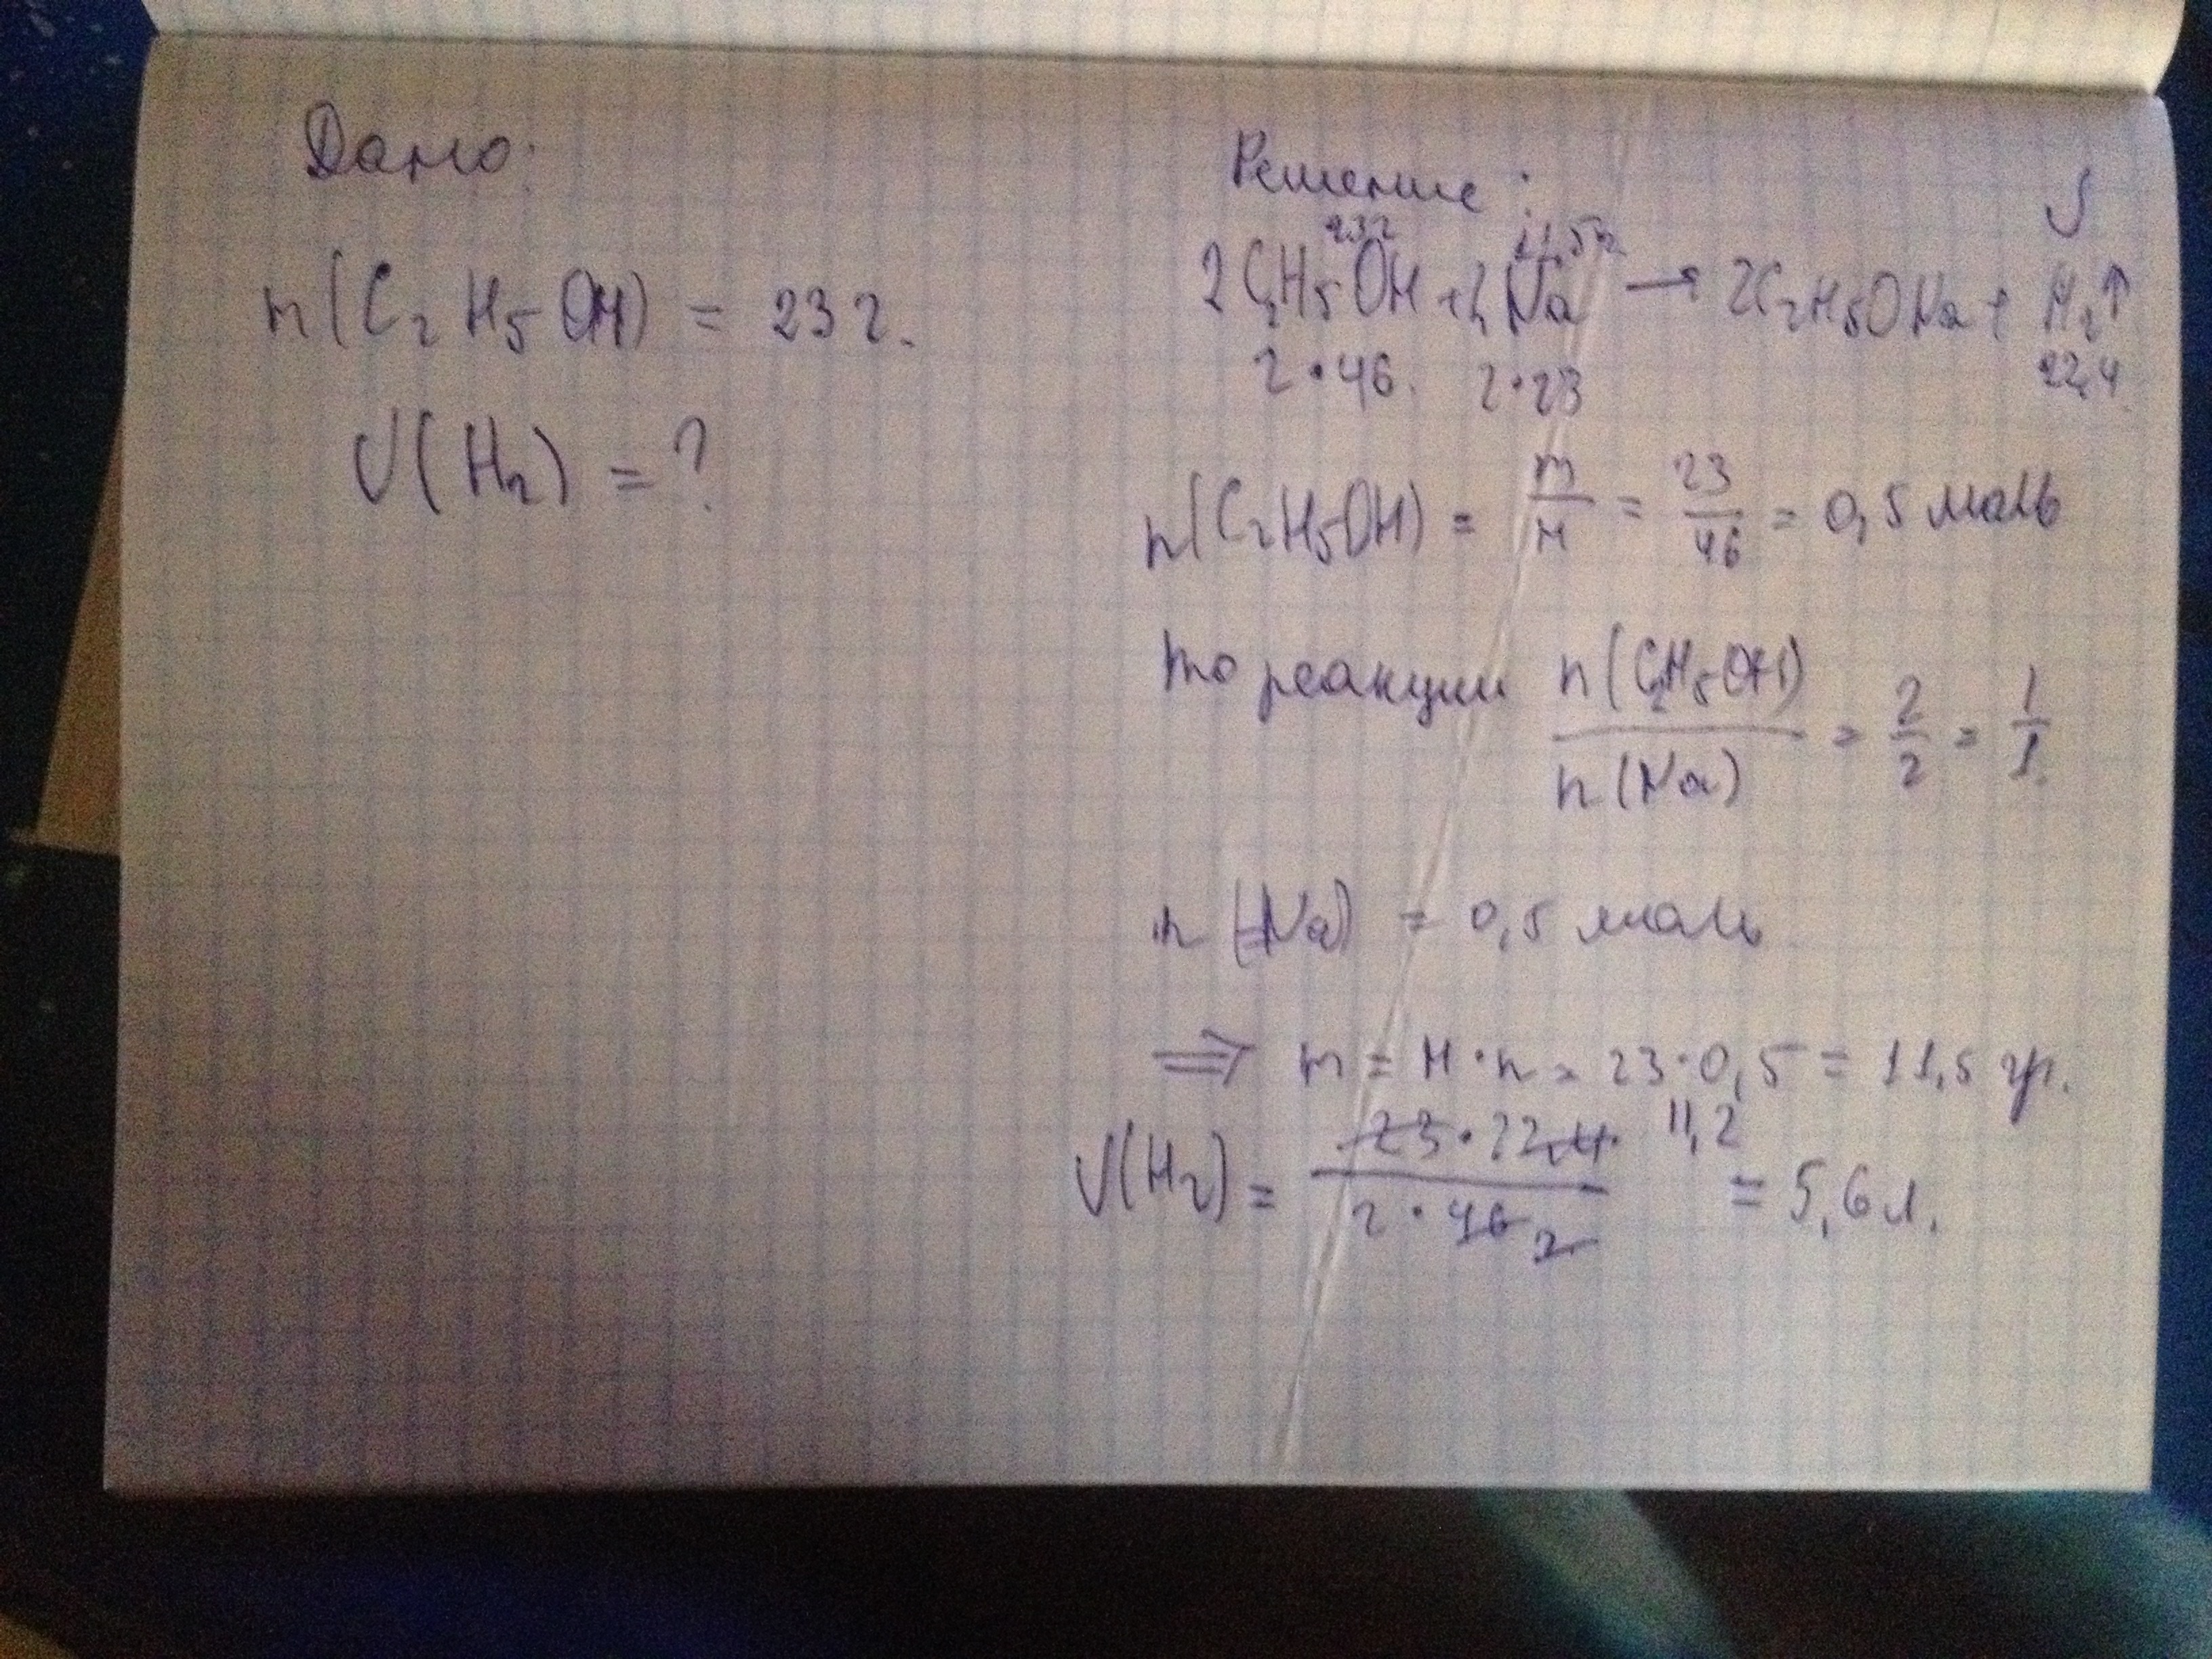 Дано:
m(C₂H₅OH) = 23 г.
V(H₂) = ?
Решение:
23г 11,5г V
2C₂H₅OH + 2Na → 2C₂H₅ONa + H₂↑
2·46. 2·23 22,4
n(C₂H₅OH) = m/M = 23/46 = 0,5 моль
по реакции n(C₂H₅OH)/n(Na) = 2/2 = 1/1
n(Na) = 0,5 моль
⇒ m = M·n = 23·0,5 = 11,5 гр.
V(H₂) = 23·22,4 11,2 / 2·46 2 = 5,6 л.